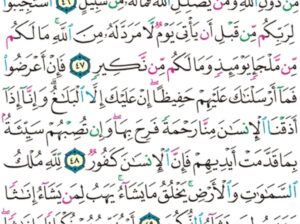 مِّن دُونِ ٱللَّهِ وَمَن يُضْلِلِ ٱللَّهُ فَمَا لَهُۥ مِن سَبِيلٍ ٤٦ ٱسْتَجِيبُوا۟
لِرَبِّكُم مِّن قَبْلِ أَن يَأْتِىَ يَوْمٌ لَّا مَرَدَّ لَهُۥ مِنَ ٱللَّهِ مَا لَكُم
مِّن مَّلْجَإٍ يَوْمَئِذٍ وَمَا لَكُم مِّن نَّكِيرٍ ٤٧ فَإِنْ أَعْرَضُوا۟
فَمَآ أَرْسَلْنَٰكَ عَلَيْهِمْ حَفِيظًا إِنْ عَلَيْكَ إِلَّا ٱلْبَلَٰغُ وَإِنَّآ إِذَآ
أَذَقْنَا ٱلْإِنسَٰنَ مِنَّا رَحْمَةً فَرِحَ بِهَا وَإِن تُصِبْهُمْ سَيِّئَةٌۢ
بِمَا قَدَّمَتْ أَيْدِيهِمْ فَإِنَّ ٱلْإِنسَٰنَ كَفُورٌ ٤٨ لِّلَّهِ مُلْكُ
ٱلسَّمَٰوَٰتِ وَٱلْأَرْضِ يَخْلُقُ مَا يَشَآءُ يَهَبُ لِمَن يَشَآءُ إِنَٰثًا